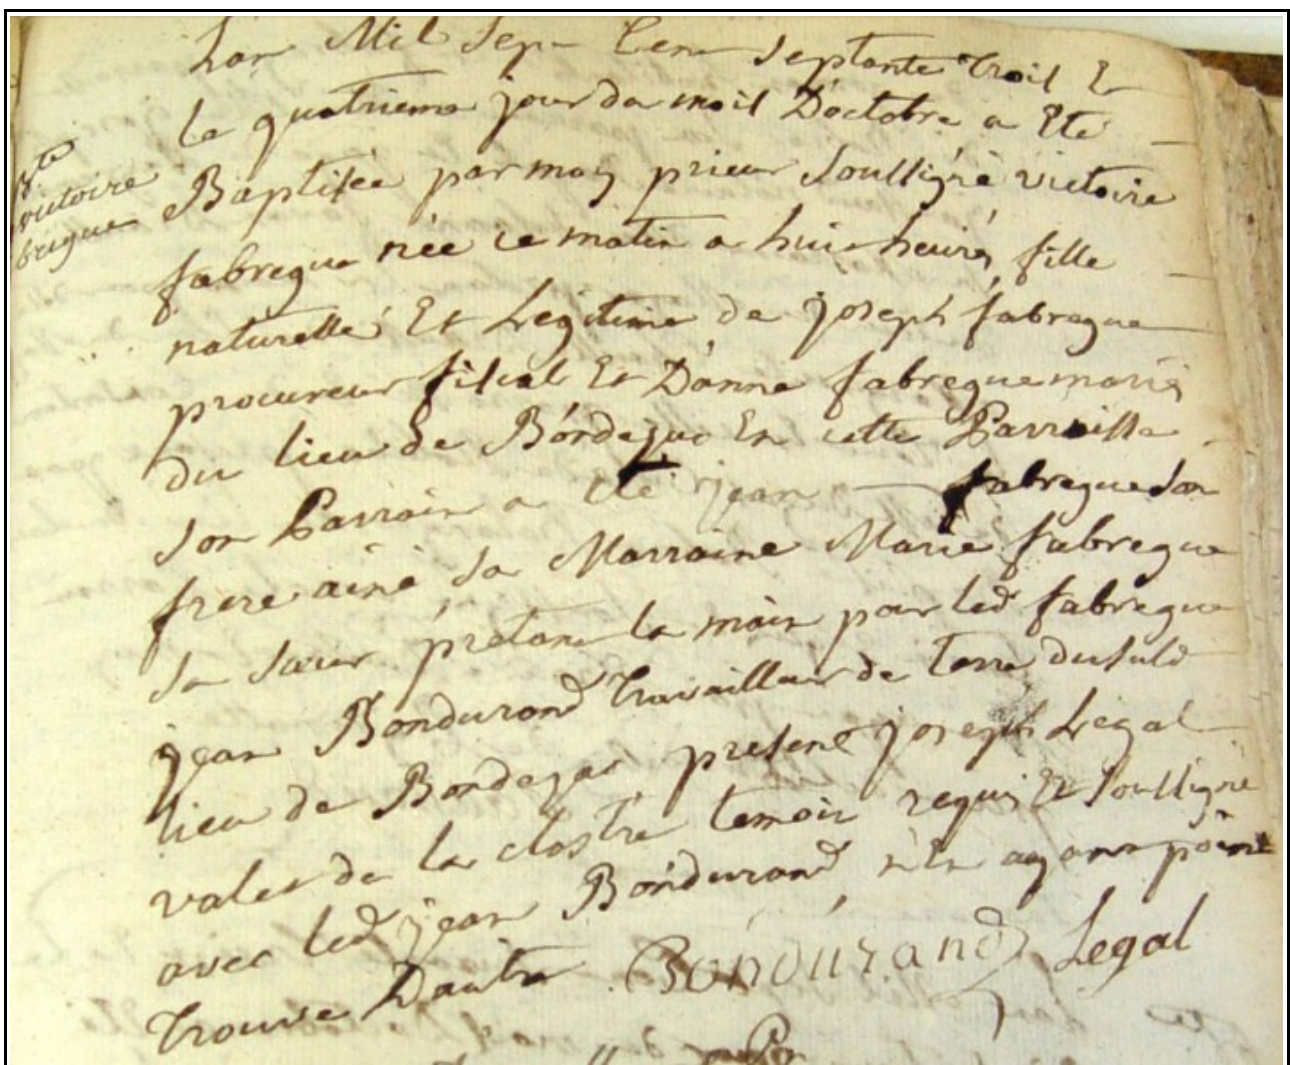 Lan Mil Sep Cen Septante Trois Et
le quatrieme jour du mois Doctobre a Eté
Bte
victoire
bregue
Baptisée par moy prieur Soussigné victoire
fabregue née ce matin a huit heures fille
naturelle Et Legitime de joseph fabregue
procureur fiscal Et Danne fabregue mariés
du lieu de Bordezac En cette Parroisse
son Parrain a eté jean fabregue son
frere ainé sa Marraine Marie fabregue
sa sœur prétant la main pour led fabregue
jean Bondurand Travailleur de Terre dusd
lieu de Bordezac, present joseph Legal
valet de la clastre temoin requis Et soussigné
avec led jean Bondurand n'En ayant point
trouvé Dautre Bondurand Legal